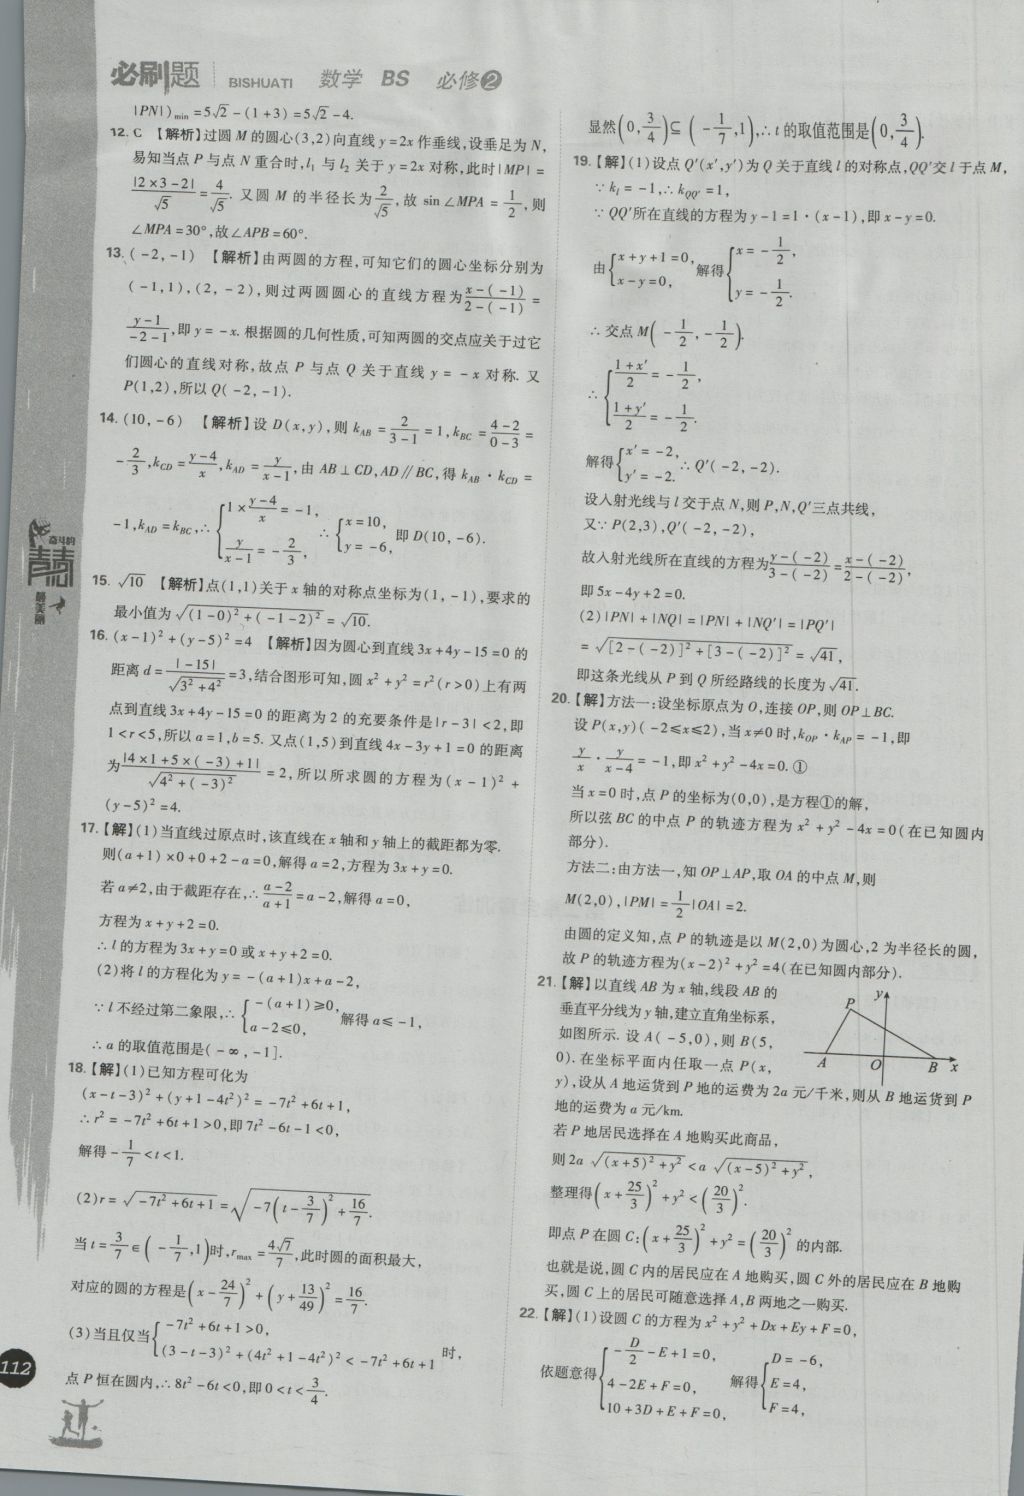 必刷题 BISHUATI 数学 BS 必修2
|PN|)min=5√2-(1+3)=5√2-4.
12. C 【解析】过圆 M 的圆心(3,2)向直线 y=2x 作垂线,设垂足为 N,
易知当点 P 与点 N 重合时,l₁ 与 l₂ 关于 y=2x 对称,此时|MP|=
|2×3-2|/√5=4/√5. 又圆 M 的半径长为2/√5,故 sin∠MPA=1/2,则
∠MPA=30°,故∠APB=60°.
13. (-2,-1) 【解析】由两圆的方程,可知它们的圆心坐标分别为
(-1,1),(2,-2),则过两圆圆心的直线方程为(x-(-1))/(2-(-1))=
(y-1)/(-2-1),即 y=-x. 根据圆的几何性质,可知两圆的交点应关于过它
们圆心的直线对称,故点 P 与点 Q 关于直线 y=-x 对称. 又
P(1,2),所以 Q(-2,-1).
14. (10,-6) 【解析】设 D(x,y),则 k_AB=2/(3-1)=1,k_BC=(4-2)/(0-3)=
-2/3,k_CD=(y-4)/x,k_AD=y/(x-1),由 AB⊥CD,AD∥BC,得 k_AB·k_CD=
-1,k_AD=k_BC,∴{1×(y-4)/x=-1, y/(x-1)=-2/3, ∴{x=10, y=-6, 即 D(10,-6).
15. √10 【解析】点(1,1)关于 x 轴的对称点坐标为(1,-1),要求的
最小值为√((1-0)²+(-1-2)²)=√10.
16. (x-1)²+(y-5)²=4 【解析】因为圆心到直线 3x+4y-15=0 的
距离 d=|-15|/√(3²+4²)=3,结合图形可知,圆 x²+y²=r²(r>0)上有两
点到直线 3x+4y-15=0 的距离为 2 的充要条件是|r-3|<2,即
1<r<5,所以 a=1,b=5. 又点(1,5)到直线 4x-3y+1=0 的距离
为|4×1+5×(-3)+1|/√(4²+(-3)²)=2,所以所求圆的方程为(x-1)²+
(y-5)²=4.
17.【解】(1)当直线过原点时,该直线在 x 轴和 y 轴上的截距都为零.
则(a+1)×0+0+2-a=0,解得 a=2,方程为 3x+y=0.
若 a≠2,由于截距存在,∴(a-2)/(a+1)=a-2,解得 a=0,
方程为 x+y+2=0.
∴l 的方程为 3x+y=0 或 x+y+2=0.
(2)将 l 的方程化为 y=-(a+1)x+a-2,
∵l 不经过第二象限,∴{-(a+1)≥0, a-2≤0, 解得 a≤-1,
∴a 的取值范围是(-∞,-1].
18.【解】(1)已知方程可化为
(x-t-3)²+(y+1-4t²)²=-7t²+6t+1,
∴r²=-7t²+6t+1>0,即 7t²-6t-1<0,
解得-1/7<t<1.
(2)r=√(-7t²+6t+1)=√(-7(t-3/7)²+16/7).
当 t=3/7∈(-1/7,1)时,r_max=4√7/7,此时圆的面积最大,
对应的圆的方程是(x-24/7)²+(y+13/49)²=16/7.
(3)当且仅当{-7t²+6t+1>0, (3-t-3)²+(4t²+1-4t²)²<-7t²+6t+1 时,
点 P 恒在圆内,∴8t²-6t<0,即 0<t<3/4.
显然(0,3/4)⊆(-1/7,1),∴t 的取值范围是(0,3/4).
19.【解】(1)设点 Q′(x′,y′)为 Q 关于直线 l 的对称点,QQ′交 l 于点 M,
∵k_l=-1,∴k_QQ′=1,
∵QQ′所在直线的方程为 y-1=1·(x-1),即 x-y=0.
由{x+y+1=0, x-y=0, 解得{x=-1/2, y=-1/2.
∴交点 M(-1/2,-1/2).
∴{(1+x′)/2=-1/2, (1+y′)/2=-1/2.
解得{x′=-2, y′=-2. ∴Q′(-2,-2).
设入射光线与 l 交于点 N,则 P,N,Q′三点共线,
又∵P(2,3),Q′(-2,-2),
故入射光线所在直线的方程为(y-(-2))/(3-(-2))=(x-(-2))/(2-(-2)),
即 5x-4y+2=0.
(2)|PN|+|NQ|=|PN|+|NQ′|=|PQ′|
=√([2-(-2)]²+[3-(-2)]²)=√41,
即这条光线从 P 到 Q 所经路线的长度为√41.
20.【解】方法一:设坐标原点为 O,连接 OP,则 OP⊥BC.
设 P(x,y)(-2≤x≤2),当 x≠0 时,k_OP·k_AP=-1,即
y/x·y/(x-4)=-1,即 x²+y²-4x=0. ①
当 x=0 时,点 P 的坐标为(0,0),是方程①的解,
所以弦 BC 的中点 P 的轨迹方程为 x²+y²-4x=0(在已知圆内
部分).
方法二:由方法一,知 OP⊥AP,取 OA 的中点 M,则
M(2,0),|PM|=1/2|OA|=2.
由圆的定义知,点 P 的轨迹是以 M(2,0)为圆心,2 为半径长的圆,
故 P 的轨迹方程为(x-2)²+y²=4(在已知圆内部分).
21.【解】以直线 AB 为 x 轴,线段 AB 的
垂直平分线为 y 轴,建立直角坐标系,
如图所示. 设 A(-5,0),则 B(5,
0). 在坐标平面内任取一点 P(x,
y),设从 A 地运货到 P 地的运费为 2a 元/千米,则从 B 地运货到 P
地的运费为 a 元/km.
y
P
A O B x
若 P 地居民选择在 A 地购买此商品,
则 2a√((x+5)²+y²)<a√((x-5)²+y²),
整理得(x+25/3)²+y²<(20/3)².
即点 P 在圆 C:(x+25/3)²+y²=(20/3)²的内部.
也就是说,圆 C 内的居民应在 A 地购买,圆 C 外的居民应在 B 地购
买,圆 C 上的居民可随意选择 A,B 两地之一购买.
22.【解】(1)设圆 C 的方程为 x²+y²+Dx+Ey+F=0,
依题意得{-D/2-E+1=0, 4-2E+F=0, 10+3D+E+F=0, 解得{D=-6, E=4, F=4,
奋斗的
青春
最美丽
112